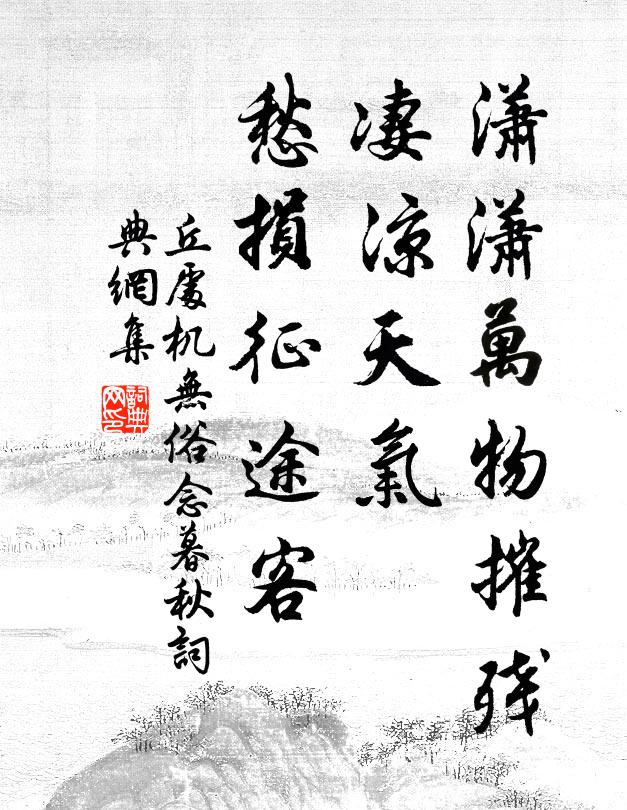 瀟瀟萬物摧残
凄涼天氣
愁損征途客
丘處机無俗念暮秋詞
典網集
詞典网印